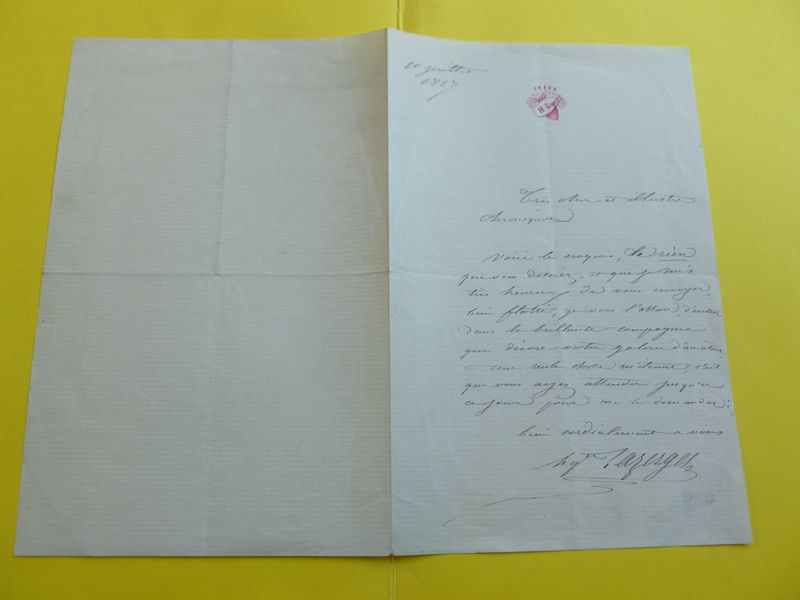 10 juillet
1867
H L
Très cher et illustre
chroniqueur
Voici le croquis, le rien
que vous désirez, et que je suis
très heureux de vous envoyer,
bien flatté, je vous l'assure, d'entrer
dans la brillante compagnie
qui décore votre galerie d'amateur
une seule chose m'étonne, c'est
que vous ayez attendu jusqu'à
ce jour pour me le demander!
bien cordialement a vous
Hyte Lazerges